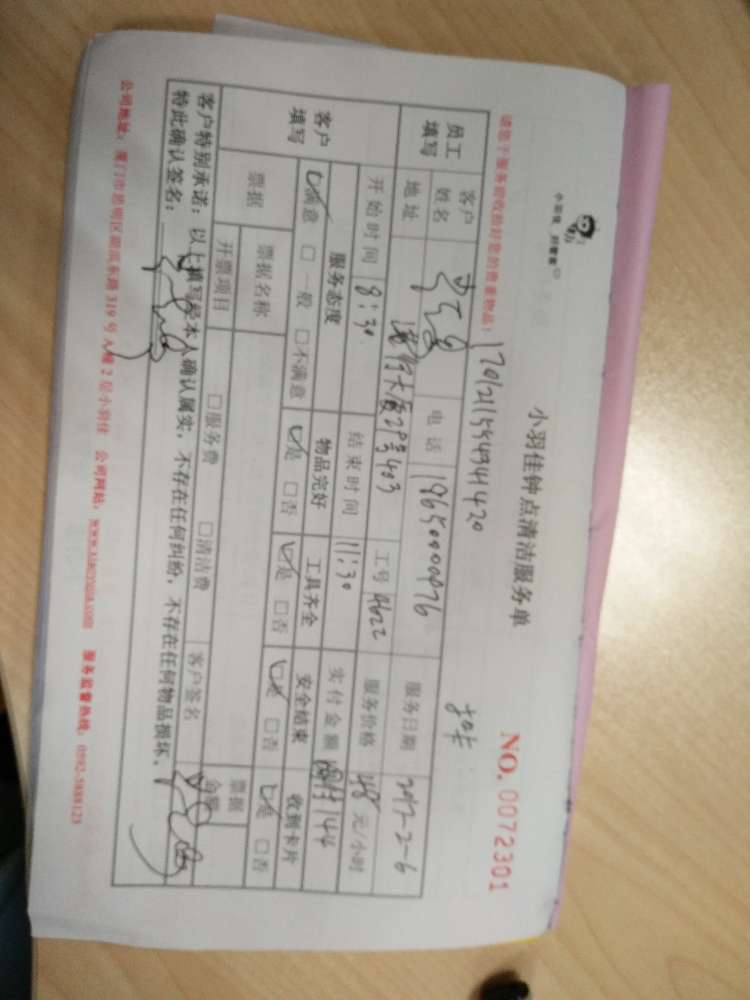 小羽佳钟点清洁服务单
小羽佳 好管家
NO. 0072301
请您于服务前收拾好您的贵重物品！
员工填写
客户姓名
电话
服务日期
地址
工号
服务价格 48 元/小时
客户填写
开始时间 8:30 结束时间 11:30 实付金额 144
服务态度 物品完好 工具齐全 安全结束 收到卡片
☑满意 □一般 □不满意 ☑是 □否 ☑是 □否 ☑是 □否 ☑是 □否
票据 票据名称 票据金额
开票项目 □服务费 □清洁费 客户签名
客户特别承诺：以上填写经本人确认属实，不存在任何纠纷，不存在任何物品损坏、
特此确认签名：
公司地址：厦门市思明区湖滨东路319号A幢2层小羽佳 公司网站：www.xiaoyujia.com 服务监督热线：0592-5888123